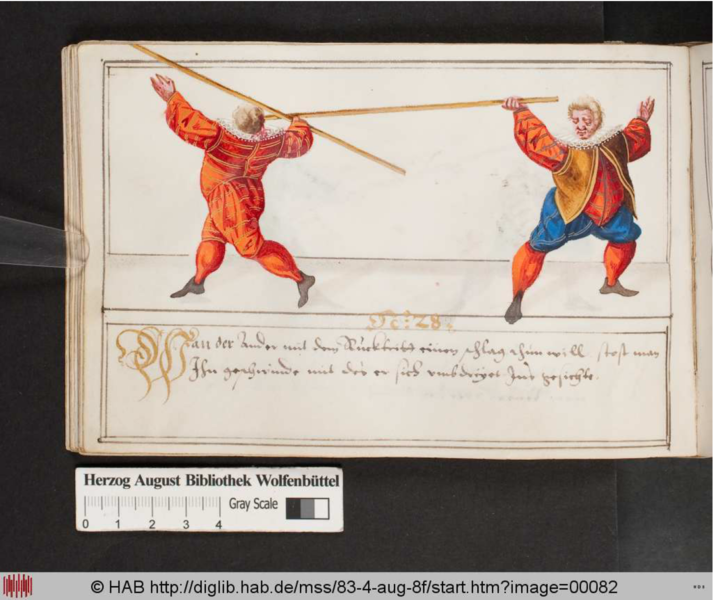 No: 28.
Wan der Ander mit dem Ruckstreich einen schlag thun will stost man
Ihn geschwinde mit der er sich umbdreyet Ins gesichte.
Herzog August Bibliothek Wolfenbüttel
Gray Scale
0 1 2 3 4
© HAB http://diglib.hab.de/mss/83-4-aug-8f/start.htm?image=00082